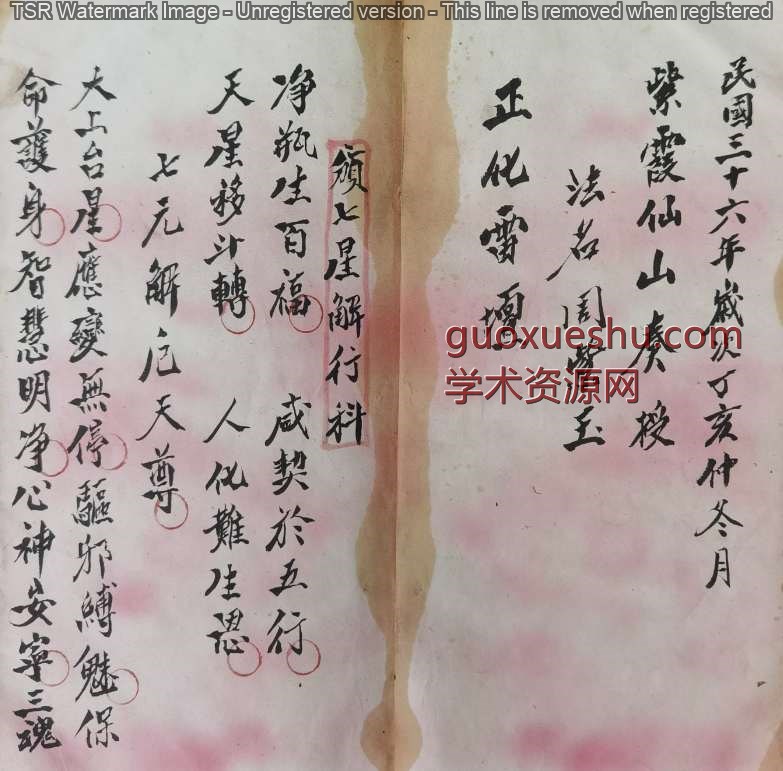 TSR Watermark Image - Unregistered version - This line is removed when registered
民國三十六年歲次丁亥仲冬月
紫霞仙山奏授
法名周鸞玉
正化雷壇
頒七星解行科
净瓶生百福 咸契於五行
天星移斗轉 人化難生恩
七元解厄天尊
大上台星應變無停驅邪縛魅保
命護身智慧明净心神安寧三魂
guoxueshu.com
学术资源网